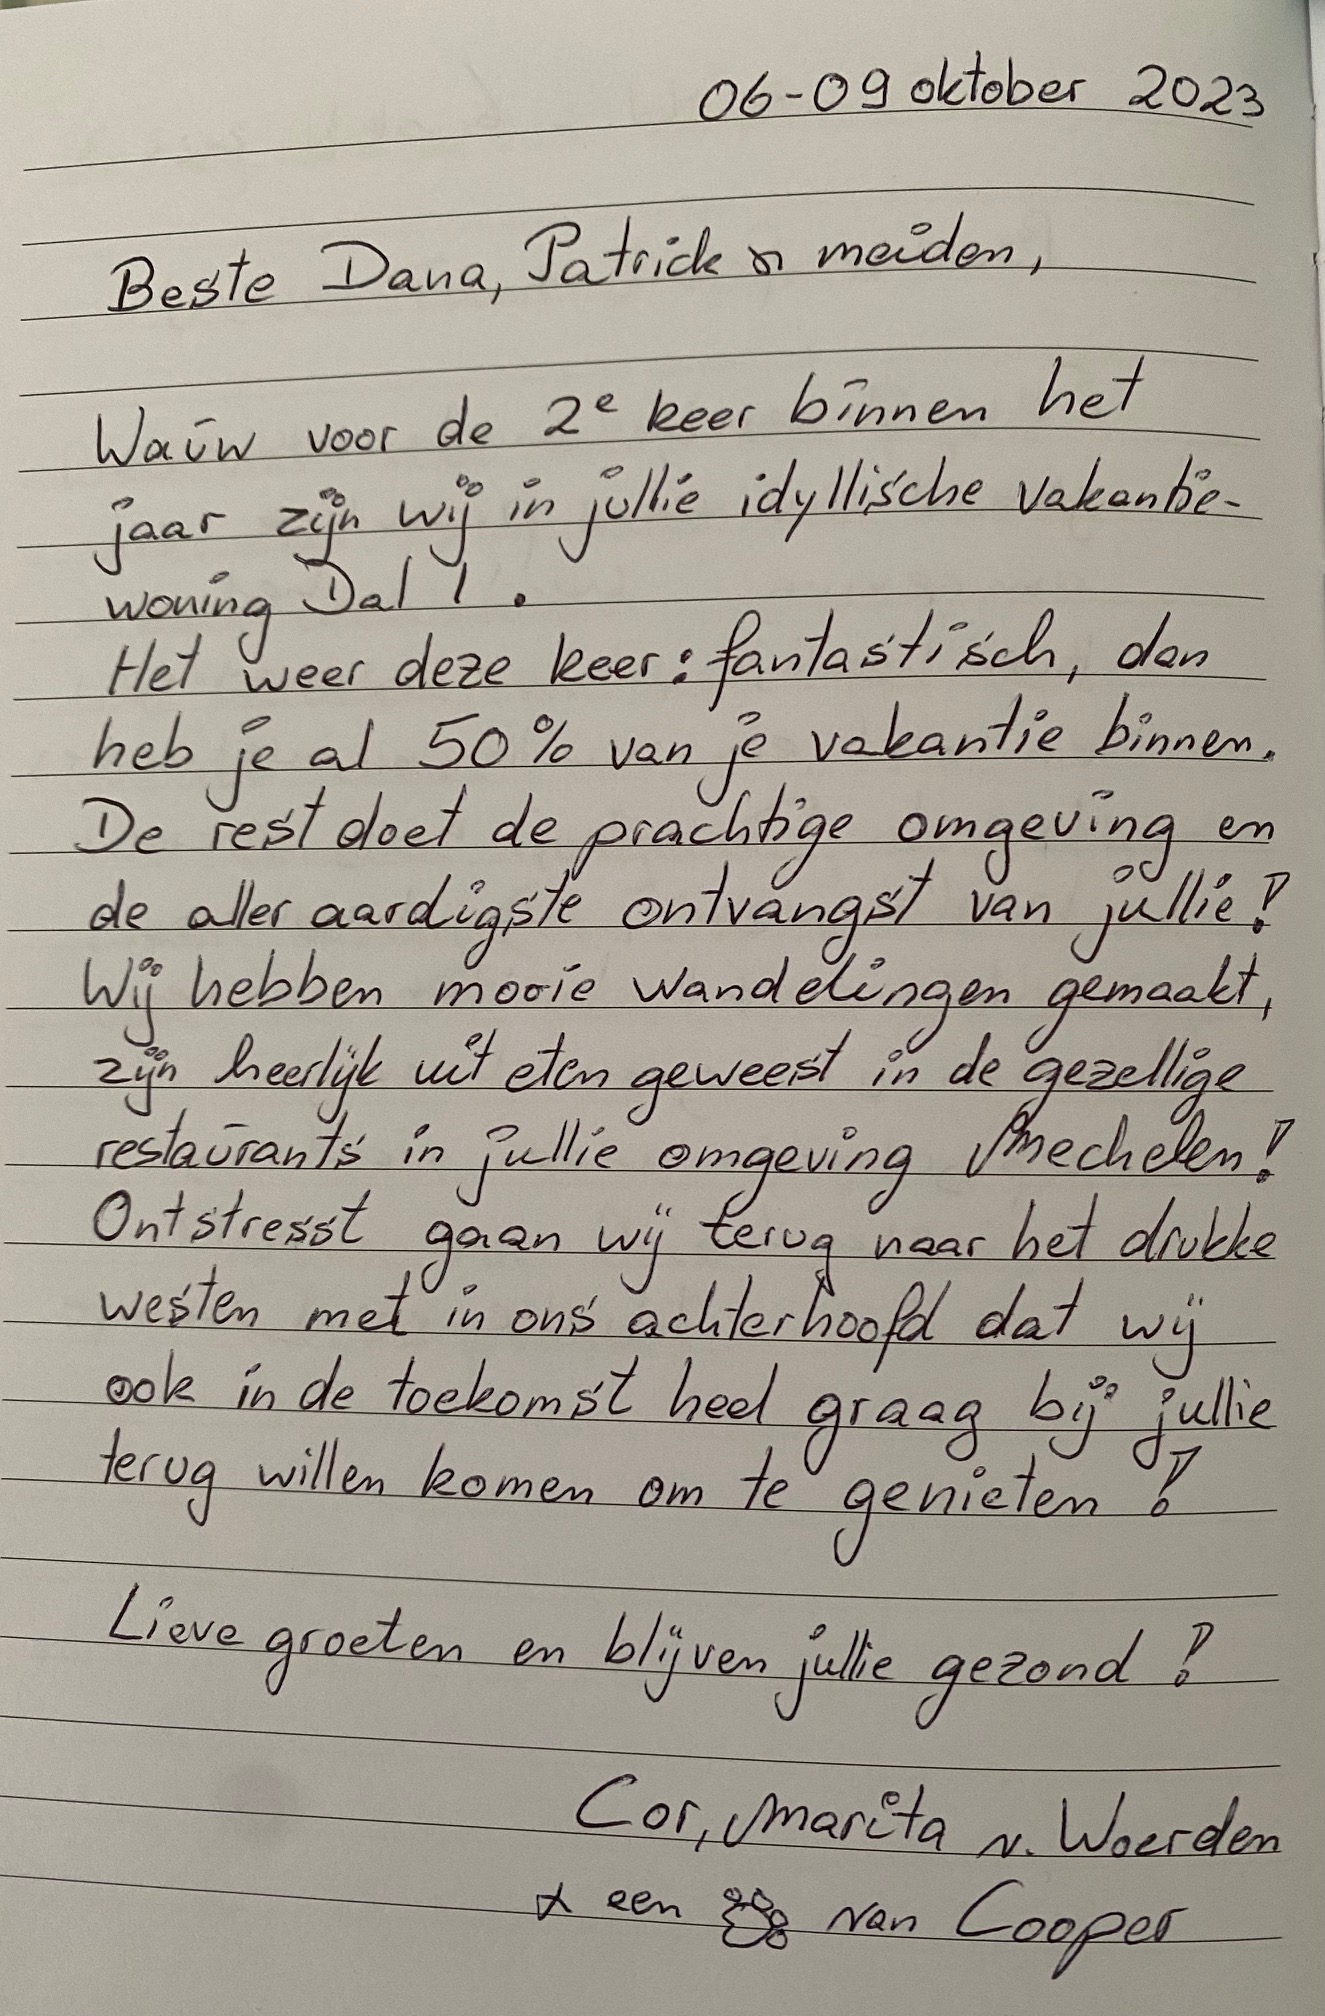 06-09 oktober 2023
Beste Dana, Patrick & meiden,
Wauw voor de 2e keer binnen het
jaar zijn wij in jullie idyllische vakantie-
woning Dal 1.
Het weer deze keer: fantastisch, dan
heb je al 50% van je vakantie binnen.
De rest doet de prachtige omgeving en
de aller aardigste ontvangst van jullie!
Wij hebben mooie wandelingen gemaakt,
zijn heerlijk uit eten geweest in de gezellige
restaurants in jullie omgeving Mechelen!
Ontstresst gaan wij terug naar het drukke
westen met in ons achterhoofd dat wij
ook in de toekomst heel graag bij jullie
terug willen komen om te genieten!
Lieve groeten en blijven jullie gezond!
Cor, Marita v. Woerden
& een van Cooper